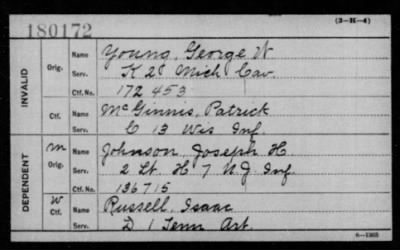 180172
(3-H-4)
INVALID
Orig.
Name Young, George W
Serv. K 2d Mich Cav.
Ctf. No. 172 453
Ctf.
Name McGinnis, Patrick
Serv. C 13 Wis Inf.
DEPENDENT
m
Orig.
Name Johnson, Joseph H
Serv. 2 Lt. H 7 N.J. Inf.
Ctf. No. 136715
W
Ctf.
Name Russell, Isaac
Serv. D 1 Tenn Art.